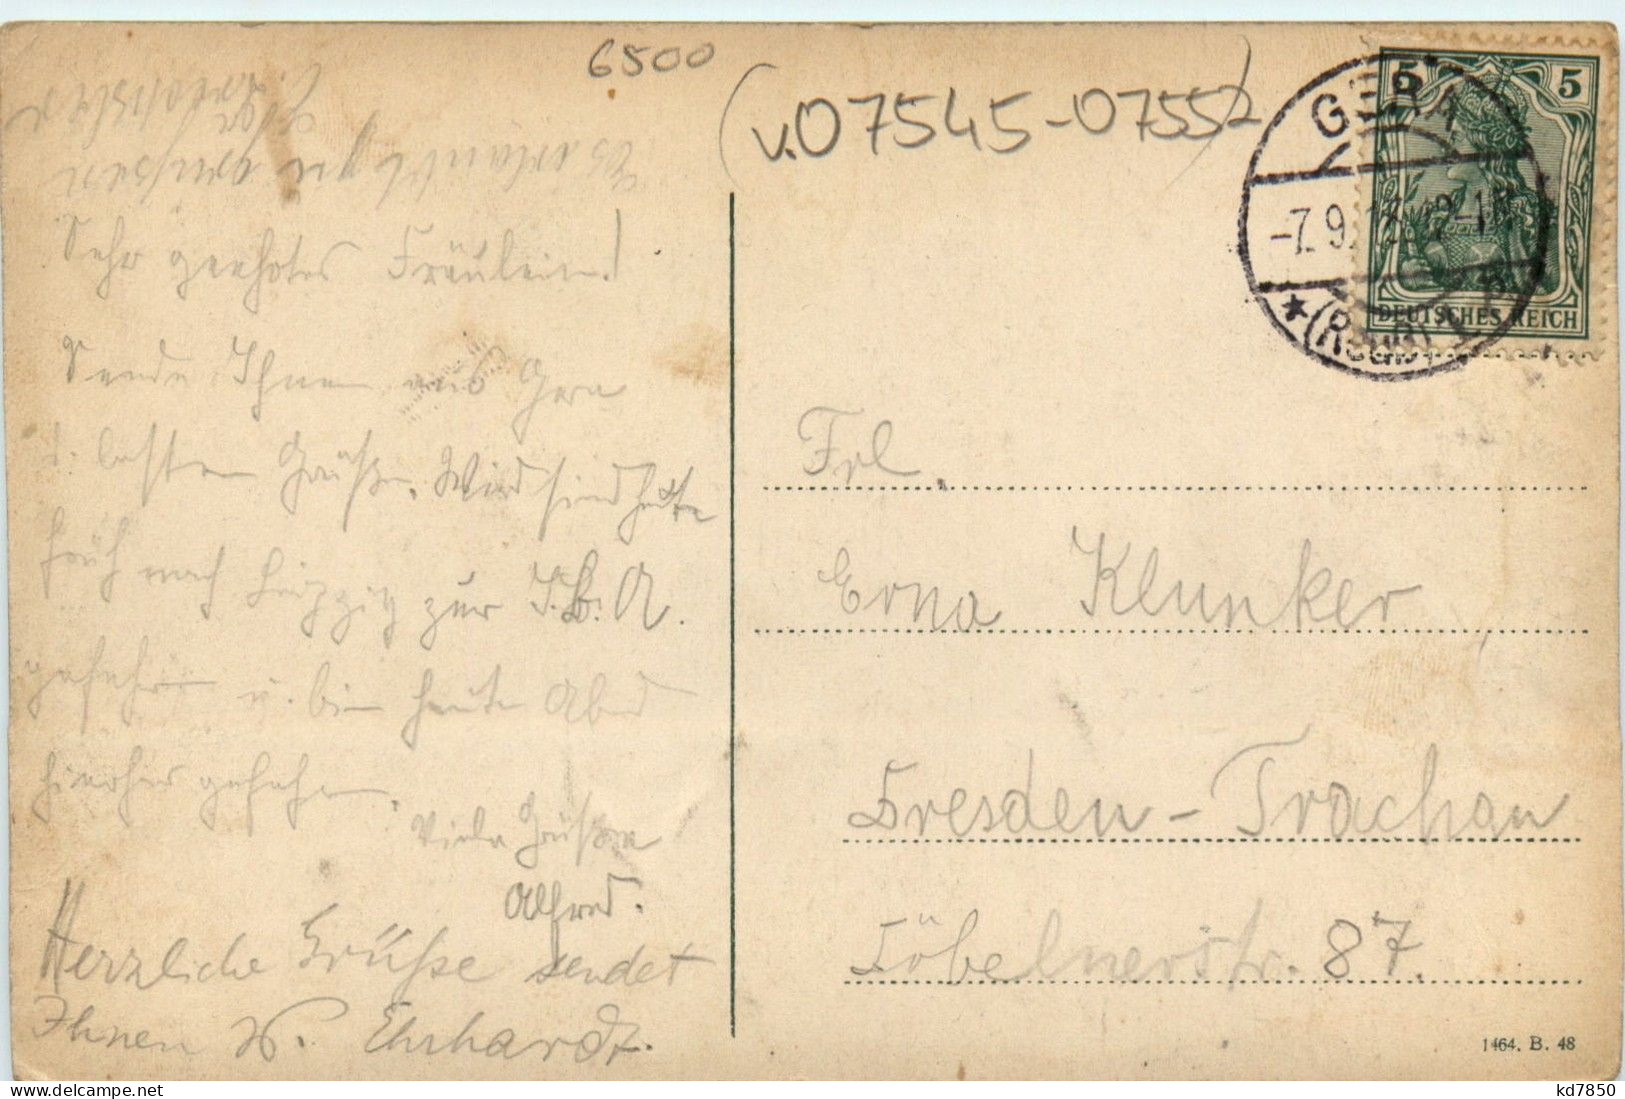 6500
(v.07545-07552)
GERA
-7.9.
★ (Reuß)
5 5
DEUTSCHES REICH
Es erlaubt zu grüßen
Sehr geehrtes Fräulein!
Sende Ihnen aus Gera
d. besten Grüße. Wird sind heute
früh nach Leipzig zur I.B.A.
gefahren u. bin heute Abend
hierher gefahren.
Viele Grüße
Alfred.
Herzliche Grüße sendet
Ihnen W. Ehrhardt.
Frl.
Erna Klunker
Dresden - Trachau
Döbelnerstr. 87.
1464. B. 48
kd7850